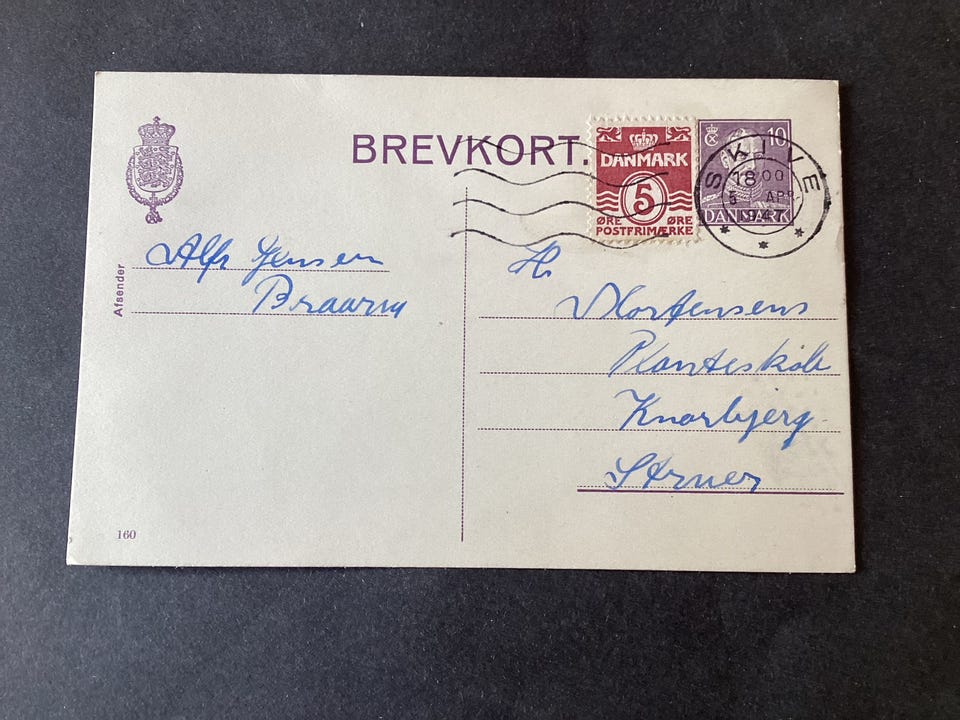 BREVKORT.
DANMARK
5
ØRE ØRE
POSTFRIMÆRKE
10
DANMARK
SKIVE
18 00
5 APR
1947
Afsender
Alfr Jensen
Braarup
Hr
Mortensens
Planteskole
Knarbjerg
Struer
160